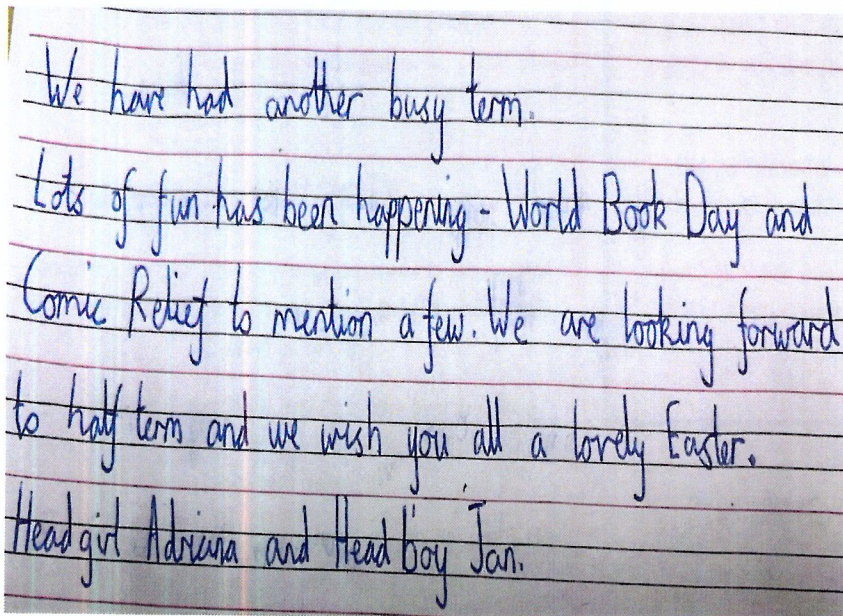 We have had another busy term.
Lots of fun has been happening - World Book Day and
Comic Relief to mention a few. We are looking forward
to half term and we wish you all a lovely Easter.
Head girl Adriana and Head boy Jan.